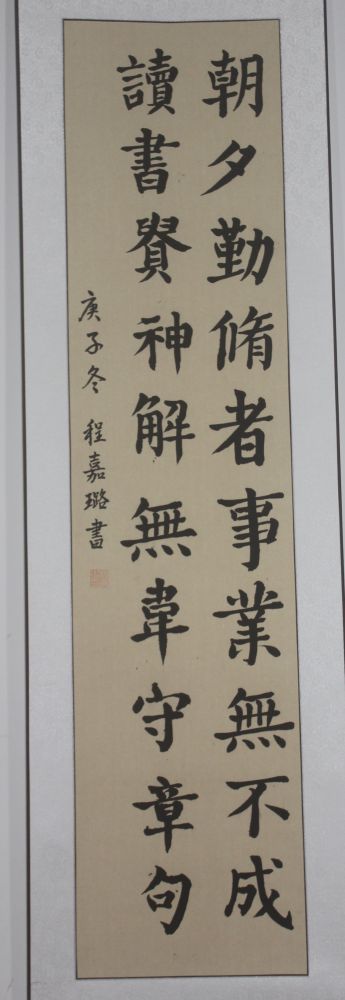 朝夕勤脩者事業無不成
讀書貴神解無事守章句
庚子冬 程嘉璐書